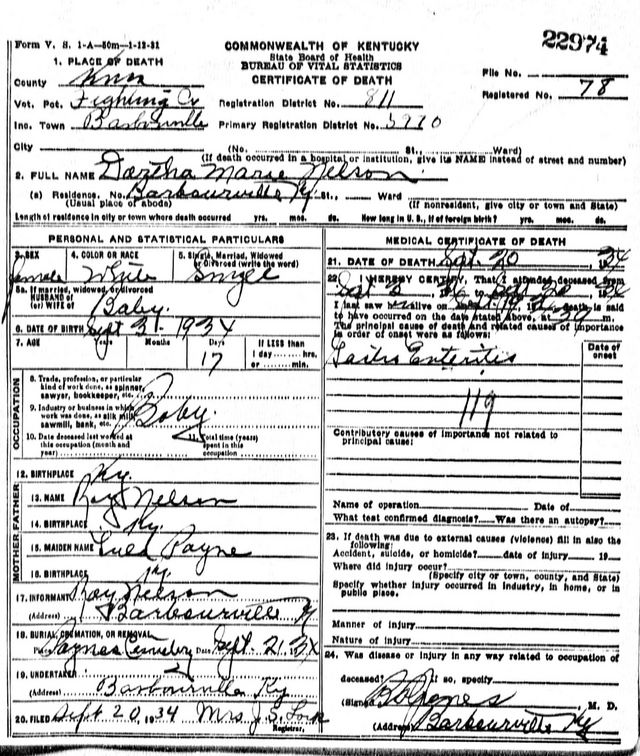 22974
Form V. S. 1-A—50m—1-12-31
COMMONWEALTH OF KENTUCKY
State Board of Health
BUREAU OF VITAL STATISTICS
CERTIFICATE OF DEATH
File No.
Registered No. 78
1. PLACE OF DEATH
County Knox
Vot. Pct. Fighting Cr Registration District No. 811
Inc. Town Barbourville Primary Registration District No. 5970
City (No. St., Ward)
(If death occurred in a hospital or institution, give its NAME instead of street and number)
2. FULL NAME Dortha Marie Nelson
(a) Residence. No. Barbourville Ky St., Ward
(Usual place of abode) (If nonresident, give city or town and State)
Length of residence in city or town where death occurred yrs. mos. ds. How long in U. S., if of foreign birth? yrs. mos. ds.
PERSONAL AND STATISTICAL PARTICULARS
3. SEX
female
4. COLOR OR RACE
White
5. Single, Married, Widowed
or Divorced (write the word)
Single
5a. If married, widowed, or divorced
HUSBAND of
(or) WIFE of Baby
6. DATE OF BIRTH Sept 3 1934
7. AGE Years Months Days
17
If LESS than
1 day hrs.
or min.
OCCUPATION
8. Trade, profession, or particular
kind of work done, as spinner,
sawyer, bookkeeper, etc.
9. Industry or business in which
work was done, as silk mill,
sawmill, bank, etc. Baby
10. Date deceased last worked at
this occupation (month and
year)
11. Total time (years)
spent in this
occupation
12. BIRTHPLACE Ky.
FATHER
13. NAME Roy Nelson
14. BIRTHPLACE Ky.
MOTHER
15. MAIDEN NAME Payne
16. BIRTHPLACE Ky
17. INFORMANT Roy Nelson
(Address) Barbourville Ky
18. BURIAL, CREMATION, OR REMOVAL
Place Paynes Cemetery Date Sept. 21 34
19. UNDERTAKER
(Address) Barbourville Ky
20. FILED Sept 20 1934 Mrs J. S.
Registrar.
MEDICAL CERTIFICATE OF DEATH
21. DATE OF DEATH Sept. 20 1934
22. I HEREBY CERTIFY, That I attended deceased from
I last saw alive on Sept 19, death is said
to have occurred on the date stated above, at m.
The principal cause of death and related causes of importance
in order of onset were as follows:
Date of
onset
Enteritis
119
Contributory causes of importance not related to
principal cause:
Name of operation Date of
What test confirmed diagnosis? Was there an autopsy?
23. If death was due to external causes (violence) fill in also the
following:
Accident, suicide, or homicide? date of injury 19
Where did injury occur?
(Specify city or town, county, and State)
Specify whether injury occurred in industry, in home, or in
public place.
Manner of injury
Nature of injury
24. Was disease or injury in any way related to occupation of
deceased? If so, specify
(Signed) Jones M. D.
(Address) Barbourville Ky